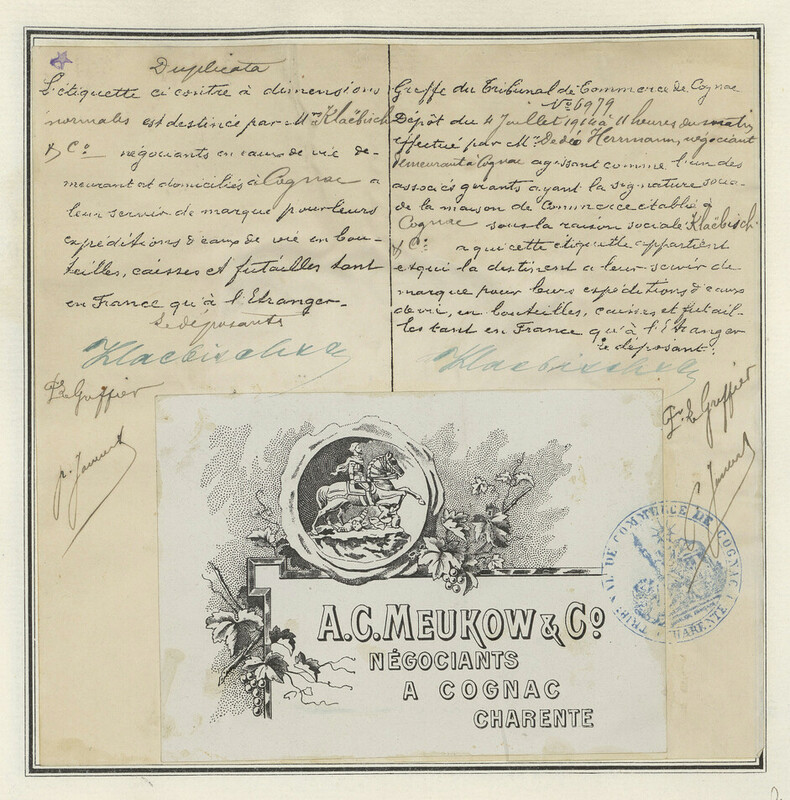 Duplicata
L'étiquette ci contre à dimensions
normales est destinée par Mrs Klaëbisch
& Co négociants en eaux de vie de-
meurant et domiciliés à Cognac a
leur servir de marque pour leurs
expéditions d'eaux de vie en bou-
teilles, caisses et futailles tant
en France qu'à l'Etranger.
Le déposants
Klaebisch & Co
Pr Le Greffier
Greffe du Tribunal de Commerce de Cognac
No 6979
Dépôt du 4 Juillet 1914 à 11 heures du matin
effectué par Mr Herrmann, négociant
demeurant à Cognac agissant comme l'un des
associés gérants ayant la signature socia-
de la maison de Commerce établie à
Cognac sous la raison sociale Klaëbisch
& Co a qui cette etiquette appartient
et qui la destinent a leur servir de
marque pour leurs expéditions d'eaux
de vie, en bouteilles, caisses et futail-
les tant en France qu'à l'Etranger
Le déposant.
Klaebisch & Co
Pr Le Greffier
A.C. MEUKOW & Co
NÉGOCIANTS
A COGNAC
CHARENTE
TRIBUNAL DE COMMERCE DE COGNAC
CHARENTE